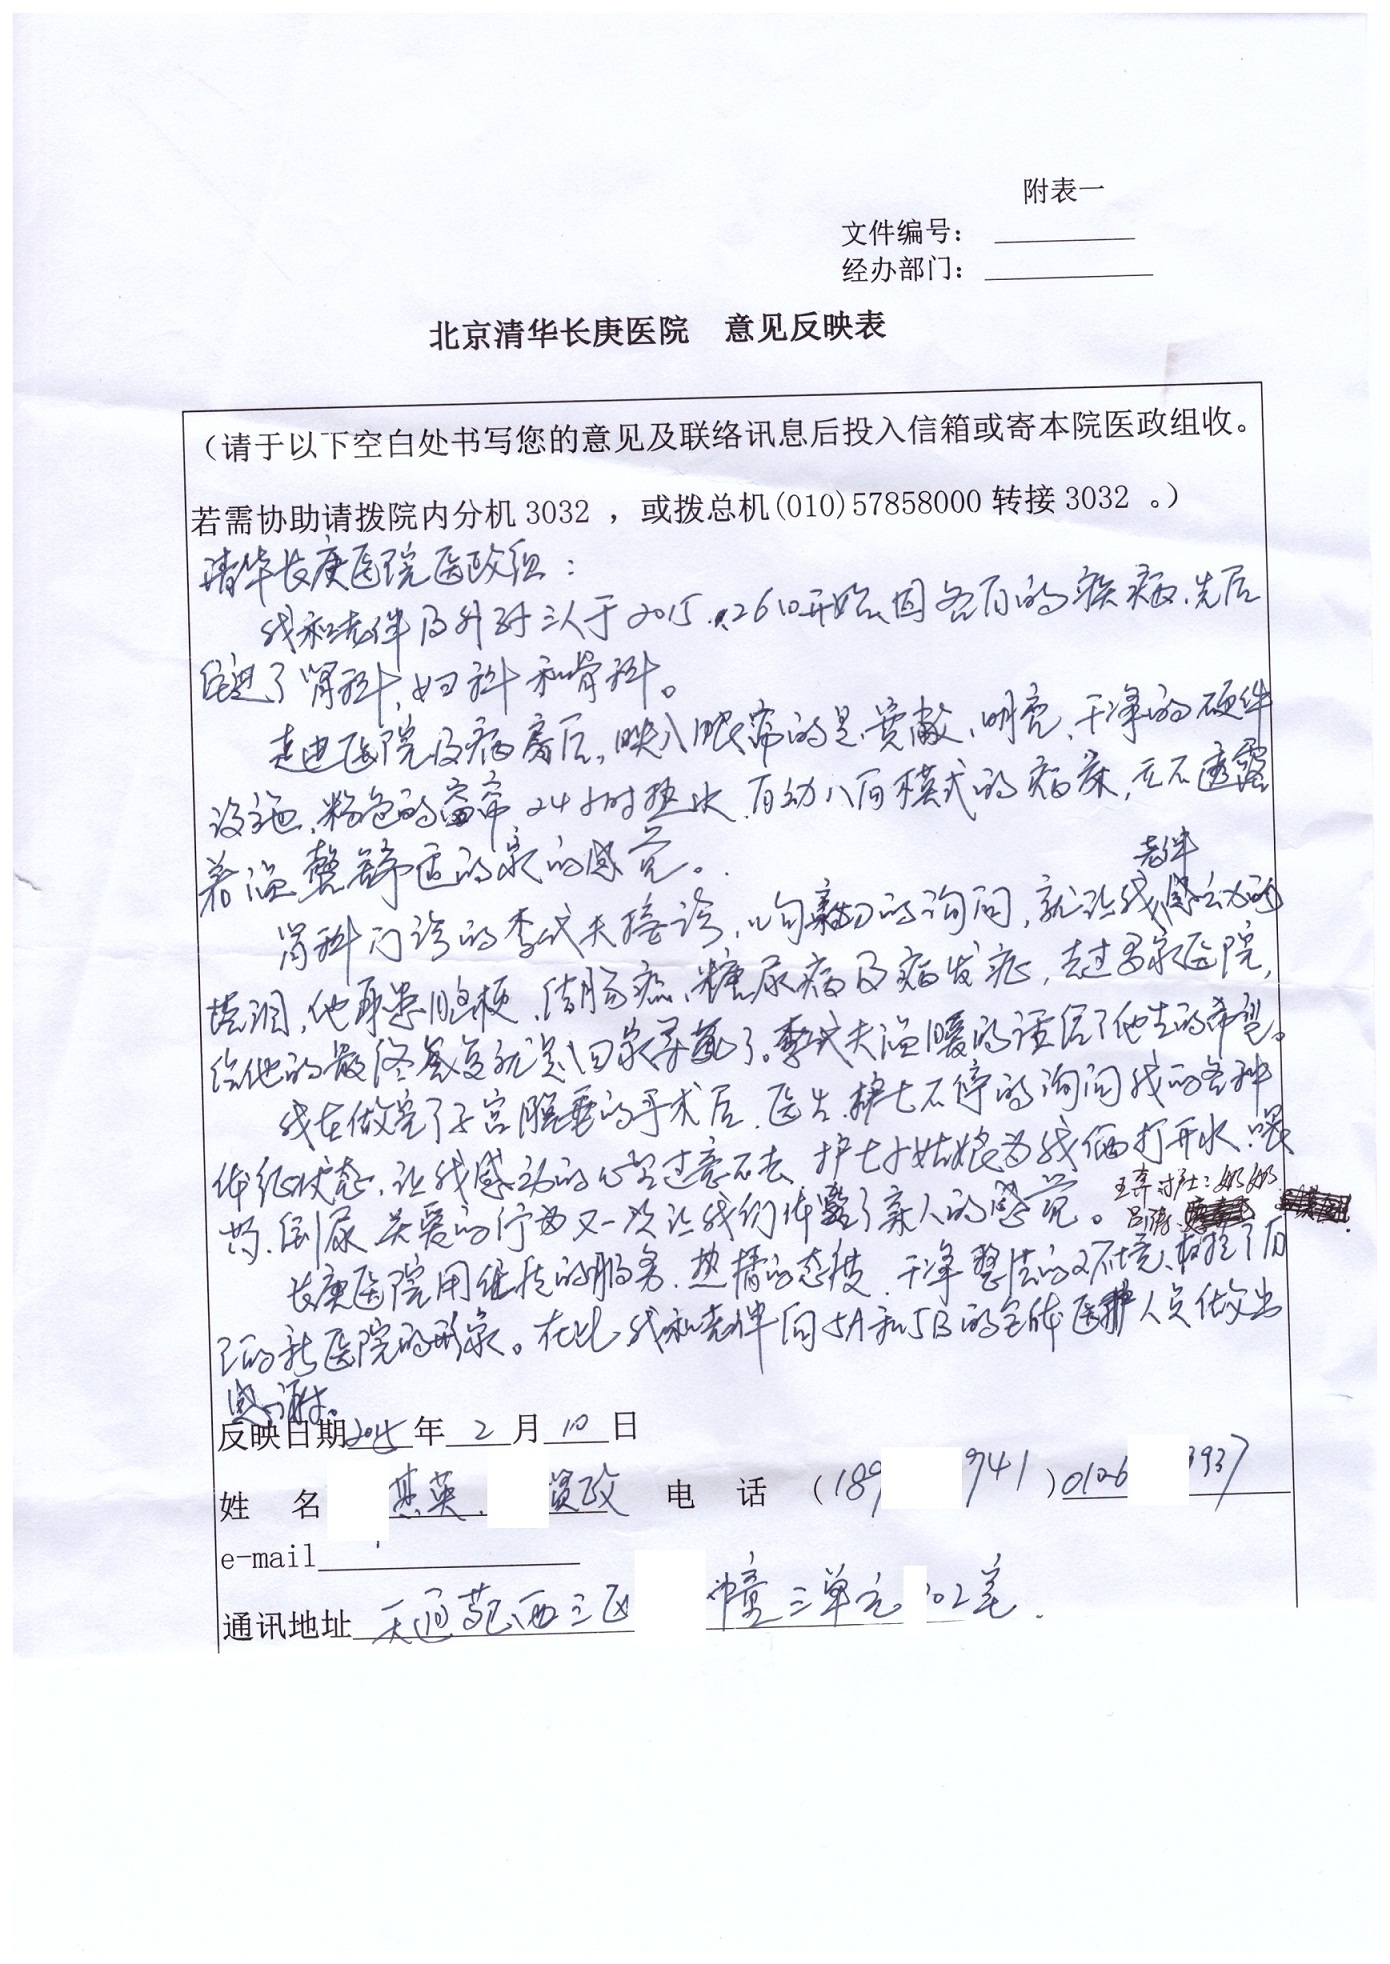 附表一
文件编号：
经办部门：
北京清华长庚医院 意见反映表
（请于以下空白处书写您的意见及联络讯息后投入信箱或寄本院医政组收。
若需协助请拨院内分机 3032 ，或拨总机(010)57858000 转接 3032 。）
清华长庚医院医政组：
我和老伴及外孙三人于2015.26日开始因各自的疾病、先后
住进了肾科、妇科和骨科。
走进医院及病房后，映入眼帘的是宽敞、明亮、干净的硬件
设施、粉色的窗帘 24小时热水、自动八间模式的病床，无不透露
着温馨舒适的家的感觉。
老伴
肾科门诊的李大夫接诊，几句亲切的询问，就让我感动的
落泪，他身患脑梗、结肠癌、糖尿病及病发症，去过多家医院，
给他的最终答复就是回家等死了。李大夫温暖的话给了他生的希望。
我在做完了子宫脱垂的手术后，医生、护士不停的询问我的各种
体征状态，让我感动的心里过意不去 护士小姑娘为我俩打开水、喂
药、倒尿 关爱的行为又一次让我们体验了亲人的感觉。
王 护士：奶奶
吕
长庚医院用优质的服务、热情的态度、干净整洁的环境、树括了自
己的新医院的形象。在此我和老伴向5A和5B的全体医护人员做出
感谢。
反映日期2015年 2 月 10 日
姓 名 其英、 贤政 电 话 （189 941 ）010-6 3937
e-mail
通讯地址 天通苑西三区 幢三单元 02室.